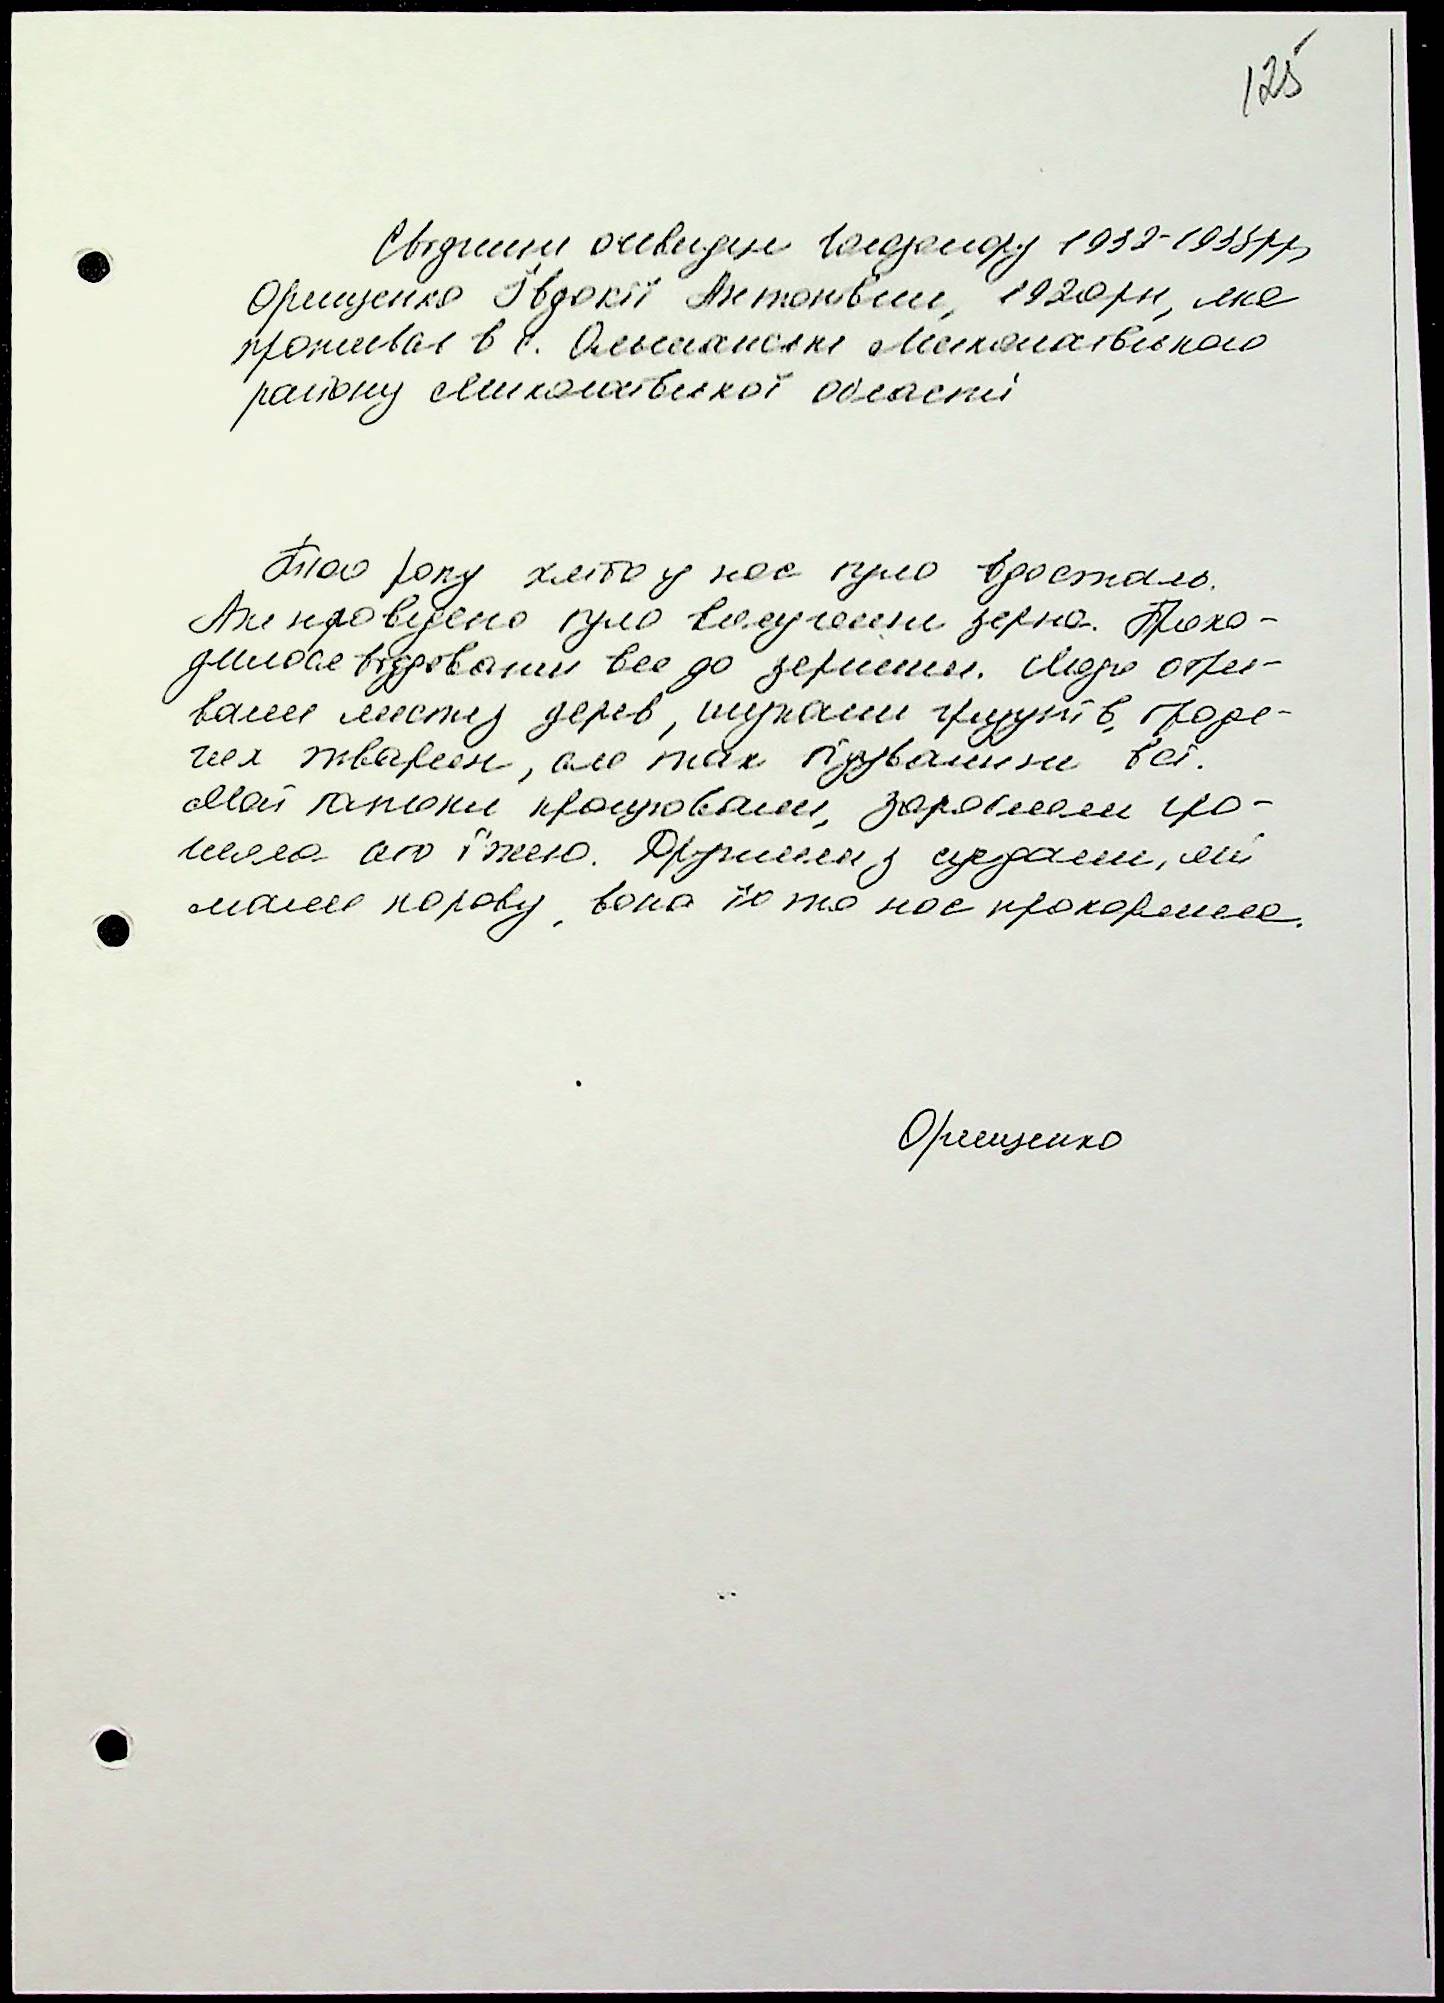 125
Свідчення очевидця голодомору 1932-1933рр
Орищенко Явдокії Антонівни, 1920рн, яка
проживає в с. Ольшанське Миколаївського
району Миколаївської області
Того року хліба у нас було вдосталь.
Але проведено було вилучення зерна. Прихо-
дилося віддавати все до зернини. Люди обри-
вали листя з дерев, шукали ховрахів, бродя-
чих тварин, але так підували не всі.
Мої батьки працювали, заробляли гро-
шима або їжею. Дружили з сусідами, які
мали корову, вона й то нас прокормила.
Орищенко